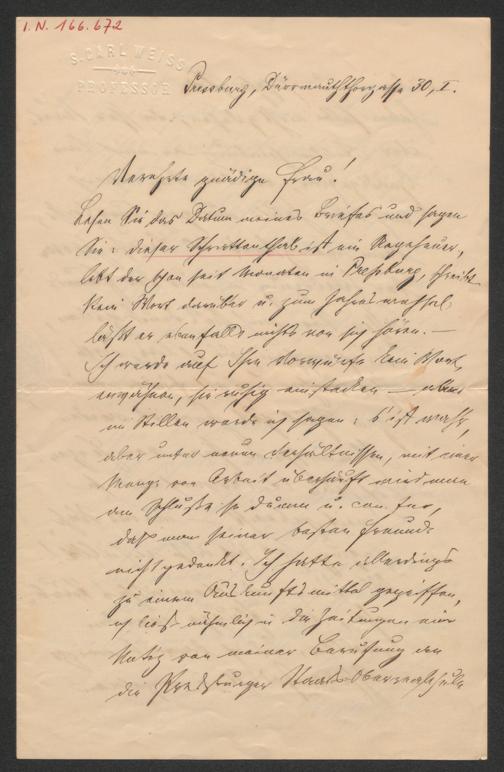 I. N. 166.672
S. CARL WEISS
PROFESSOR
Pressburg, Dürrmauththorgasse 30, I.
Verehrte gnädige Frau!
Sehen Sie das Datum meines Briefes und sagen
Sie: dieser Schrattenthal ist ein Ungeheuer,
lebt der schon seit Monaten in Pressburg, schreibt
kein Wort darüber u. zum Jahreswechsel
läßt er ebenfalls nichts von sich hören. —
Ich werde auf Ihre Vorwürfe kein Wort
erwähnen, sie ruhig einstecken — aber
im Stillen werde ich sagen: 's ist wahr,
aber unter neuen Verhältnissen, mit einer
Menge von Arbeit überhäuft wird man
am Schluße so dumm u.
daß man seiner besten Freunde
nicht gedenkt. Ich hatte allerdings
zu einem Auskunftsmittel gegriffen,
ich ließ nähmlich in die Zeitungen eine
Notiz von meiner Berufung an
die Pressburger Staats-Oberrealschule